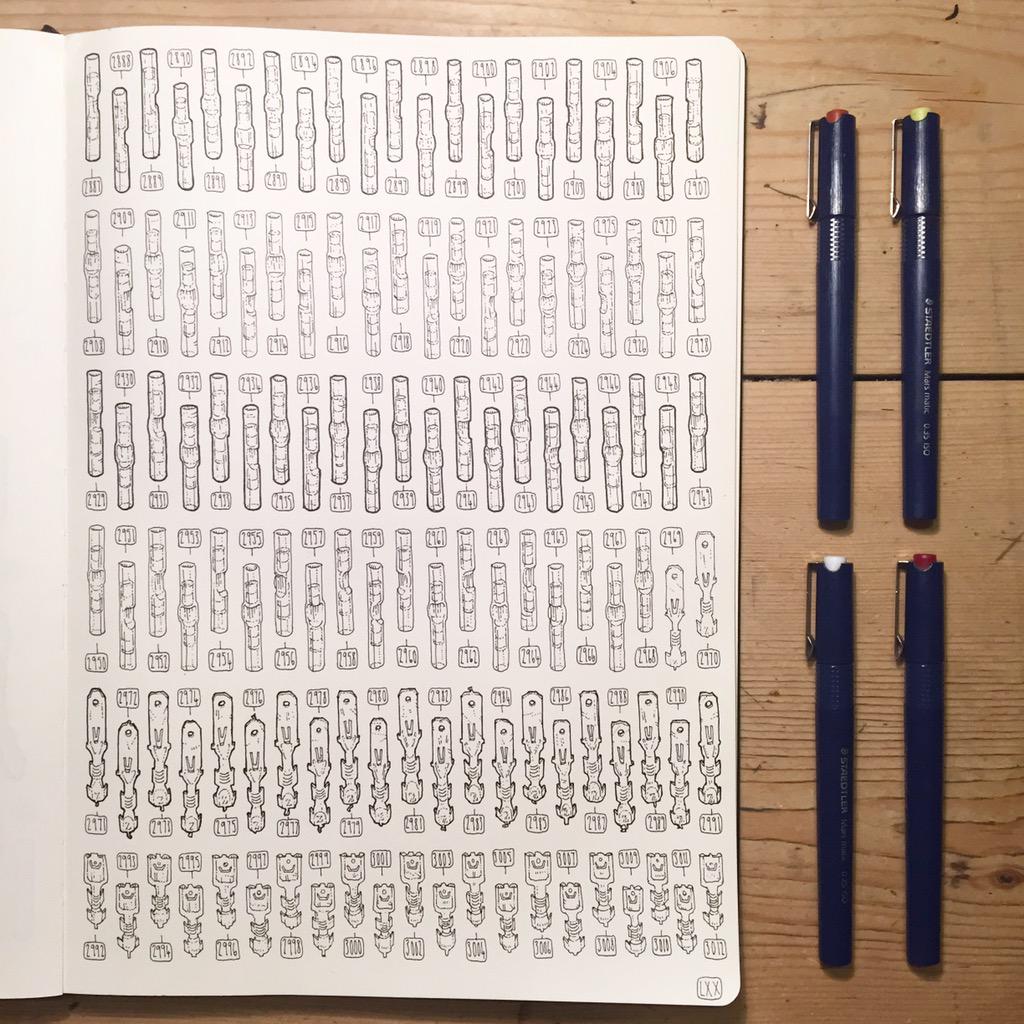 2888 2890 2892 2894 2896 2898 2900 2902 2904 2906
2887 2889 2891 2893 2895 2897 2899 2901 2903 2905 2907
2909 2911 2913 2915 2917 2919 2921 2923 2925 2927
2908 2910 2912 2914 2916 2918 2920 2922 2924 2926 2928
2930 2932 2934 2936 2938 2940 2942 2944 2946 2948
2929 2931 2933 2935 2937 2939 2941 2943 2945 2947 2949
2951 2953 2955 2957 2959 2961 2963 2965 2967 2969
2950 2952 2954 2956 2958 2960 2962 2964 2966 2968 2970
2972 2974 2976 2978 2980 2982 2984 2986 2988 2990
2971 2973 2975 2977 2979 2981 2983 2985 2987 2989 2991
2993 2995 2997 2999 3001 3003 3005 3007 3009 3011
2992 2994 2996 2998 3000 3002 3004 3006 3008 3010 3012
LXX
STAEDTLER Mars matic 0.35 ISO
STAEDTLER Mars matic 0.25 ISO